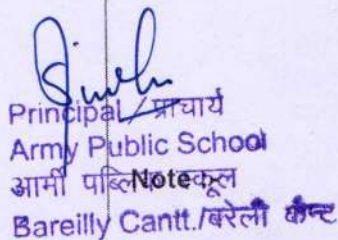 Principal / प्राचार्य
Army Public School
आर्मी पब्लिक स्कूल
Note
Bareilly Cantt./बरेली कैन्ट